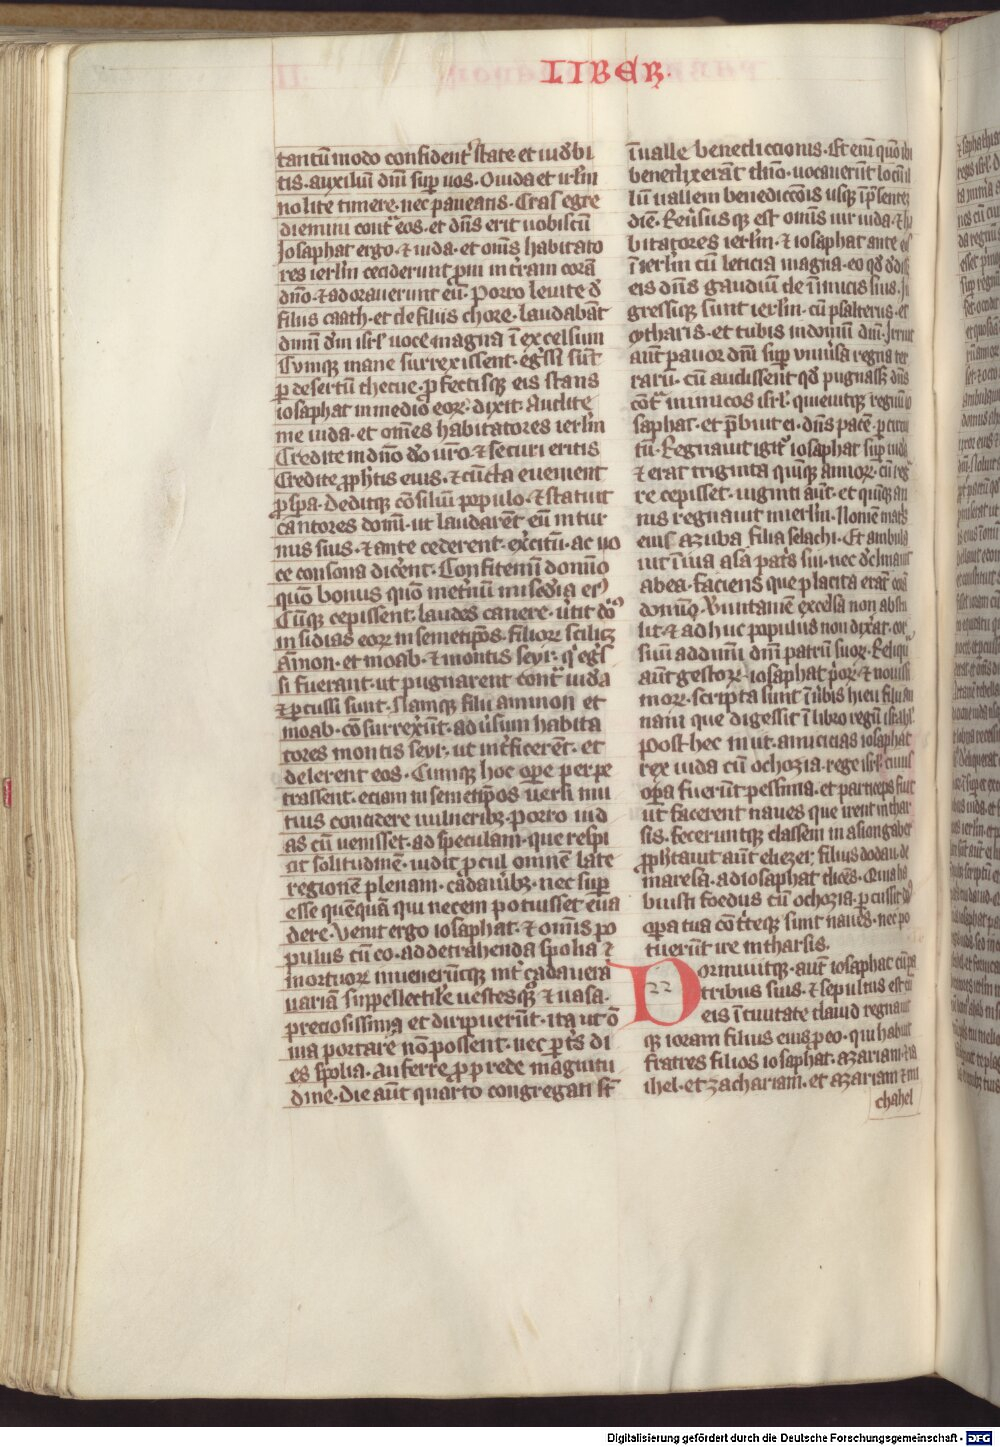 LIBER·
tantū modo confident᷒ state et iudebi
tis· auxiliū dnī sup uos· O iuda et irl̄m
nolite timere· nec paueatis· Cras egre
diemini cont̄ eos· et dn̄s erit uobiscū
Josaphat ergo· ⁊ iuda· et om̄s habitato
res ierl̄m ceciderunt p̄ni in t̄ram corā
dn̄o· ⁊ adorauerunt eū· Porro leuite de
filiis caath· et de filiis chore· laudabāt
dnm̄ dm̄ isrl̄ uoce magna ī excelsum
Cumq; mane surrexissent· eḡssi sūt
p desertū thecue· p fectisq; eis stans
iosaphat in medio eorꝝ· dixit· Audite
me iuda· et om̄es habitatores ierl̄m
Credite in dn̄o deo uro· ⁊ securi eritis
Credite pphetis eius· ⁊ cūcta euenient
pspa· Deditq; cōsiliū populo· ⁊ statuit
cantores domī· ut laudarēt eū in tur
mis suis· ⁊ ante cederent· exc̄itū· ac uo
ce consona dicerent· Confitemī domīo
quō bonus quō in et̄nū miscd̄ia ei᷒
Cūq; cepissent· laudes canere· ūtit ds̄
insidias eorꝝ in semetip̄os· filiorꝝ scilicꝫ
Āmon· et moab· ⁊ montis seyr· q̇ eḡs
si fuerant· ut pugnarent cont̄ iuda
⁊ p cussi sunt· Namq; filii ammon et
moab· cōsurrexērt· ad ūsum habita
tores montis seyr· ut int̄ficerēt· et
delerent eos· Cumq; hoc ope perpe
trassent· eciam in semetip̄os uersi mu
tuis concidere uulneribꝫ· Porro iud
as cū uenisset· ad speculam· que respi
cit solitudinē· uidit pcul omnē late
regionē plenam· cadauībꝫ· nec sup
esse quēquā qui necem potuisset eua
dere· Venit ergo iosaphat· ⁊ om̄is po
pulus cū eo· ad detrahenda spolia ⁊
mortuorꝝ inuenerūtq; int̄ cadauera
uariā suppellectilē uestesq; ⁊ uasa·
preciosissima et diripuerūt· ita ut ō
nia portarē nō possent· nec p̄t᷒ di
es spolia· auferre p p̄rede magnitu
dine· Die aūt quarto congregati st̄
ī ualle benediccionis· Et enī quō ibi
benedixerāt dn̄o· uocauerūt locū il
lū uallem benediccōis usq; ī p̄sentē
diē· Reūsus q; est om̄is uir iuda· ⁊ h
bitatores ierl̄m· ⁊ iosaphat ante eos
ī ierl̄m cū leticia magna· eo qd̄ dedisset
eis dn̄s gaudiū de inimicis suis· In
gressiq; sunt ierl̄m· cū psalteriis· et
cytharis· et tubis in domū dnī· Irruit
aūt pauor dnī sup uniūsa regna ter
rarū· cū audissent qd̄ pugnass; dn̄s
cōt̄ inimicos isrl̄· quieuitq; regnū io
saphat· et p̄buit ei· dn̄s pacē· p circui
tū· Regnauit igit᷒ iosaphat sup iudā
⁊ erat triginta quinq; annorꝝ· cū reg
re cepisset· uiginti aūt· et quinq; an
nis regnauit in ierl̄m· Nomē matris
eius azuba filia selachi· Et ambula
uit ī uia asa patris sui· nec declinauit
ab ea· faciens que placita erāt corā
domīo· Veruntamē excelsa non abstu
lit· ⁊ adhuc populus non dixerat· cor
suū ad dnm̄ dm̄ patrū suorꝝ· Reliqua
aūt gestorꝝ· iosaphat p̄orꝝ· ⁊ nouissi
morꝝ· scripta sunt ī ūbis hieu filii an
nani que digessit ī libro regū israhl̄·
Post hec iniit· amicicias iosaphat
rex iuda cū ochozia· rege isrl̄· cuius
opa fuerūt pessima· et particeps fuit
ut facerent naues que irent in thar
sis· feceruntq; classem in asiongaber
pphetauit aūt eliezer· filius dodau· de
maresa· ad iosaphat dicēs· Quia ha
buisti foedus cū ochozia· p cussit ds̄
opa tua cōt̄iteq; sunt naues· nec po
tuerūt ire in tharsis·
22
Dormiuitq; aūt iosaphat cū pa
tribus suis· ⁊ sepultus est cū
eis ī ciuitate dauid regnauit
q; ioram filius eius p eo· qui habuit
fratres filios iosaphat· azariam· ⁊ ia
ihel· et zachariam· et azariam ⁊ mi
chahel
Digitalisierung gefördert durch die Deutsche Forschungsgemeinschaft - DFG